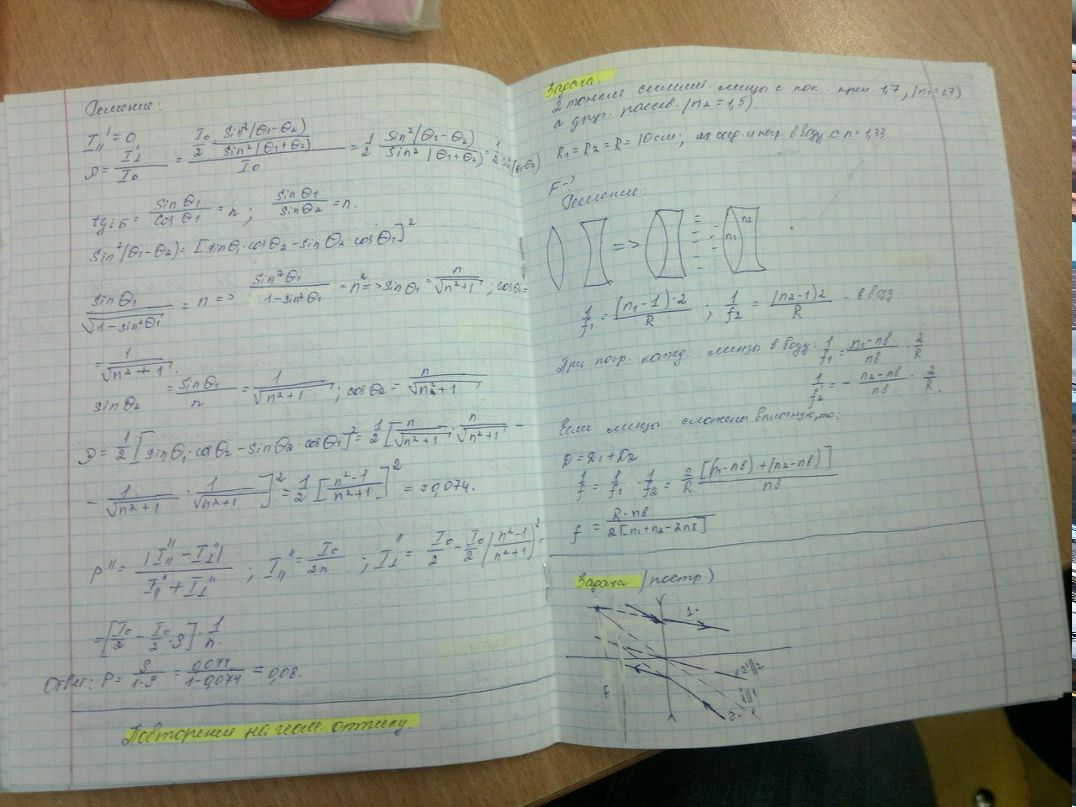 Решение:
I∥' = 0,
ρ = I⊥'/I₀ = (I₀/2 · sin²(θ₁-θ₂)/sin²(θ₁+θ₂))/I₀ = 1/2 sin²(θ₁-θ₂)/sin²(θ₁+θ₂) = 1/2 sin²(θ₁-θ₂)
tg iБ = sinθ₁/cosθ₁ = n; sinθ₁/sinθ₂ = n.
sin²(θ₁-θ₂) = [sinθ₁·cosθ₂ - sinθ₂·cosθ₁]²
sinθ₁/√(1-sin²θ₁) = n => sin²θ₁/(1-sin²θ₁) = n² => sinθ₁ = n/√(n²+1); cosθ₁ =
= 1/√(n²+1).
sinθ₂ = sinθ₁/n = 1/√(n²+1); cosθ₂ = n/√(n²+1)
ρ = 1/2 [sinθ₁·cosθ₂ - sinθ₂ cosθ₁]² = 1/2 [n/√(n²+1) · n/√(n²+1) -
- 1/√(n²+1) · 1/√(n²+1)]² = 1/2 [(n²-1)/(n²+1)]² = ≈0,074.
P'' = |I∥'' - I⊥''|/(I∥'' + I⊥''); I∥'' = I₀/2n; I⊥'' = I₀/2 - I₀/2 (n²-1/n²+1)² =
= [I₀/2 - I₀/2·ρ]·1/n.
Ответ: P = ρ/(1-ρ) = 0,074/(1-0,074) = 0,08.
Повторение на геом оптику.
Задача.
2 тонкие линзы с пок. прел. 1,7, (n₁=1,7)
а друг. рассеив. (n₂ = 1,5).
R₁ = R₂ = R = 10 см; и погр. в воду с n = 1,33
F - ?
Решение:
=> n₁ n₂
1/f₁ = (n₁-1)·2/R; 1/f₂ = (n₂-1)2/R - в возд
При погр. кажд. линзы в воду: 1/f₁ = (n₁-nв)/nв · 2/R
1/f₂ = - (n₂-nв)/nв · 2/R.
Если линзы сложены вплотную, то:
D = D₁ + D₂
1/f = 1/f₁ · 1/f₂ = 2/R [(n₁-nв)+(n₂-nв)]/nв
f = R·nв/2[n₁+n₂-2nв]
Задача (постр)
1.
2'||2
1'||1
f
2.